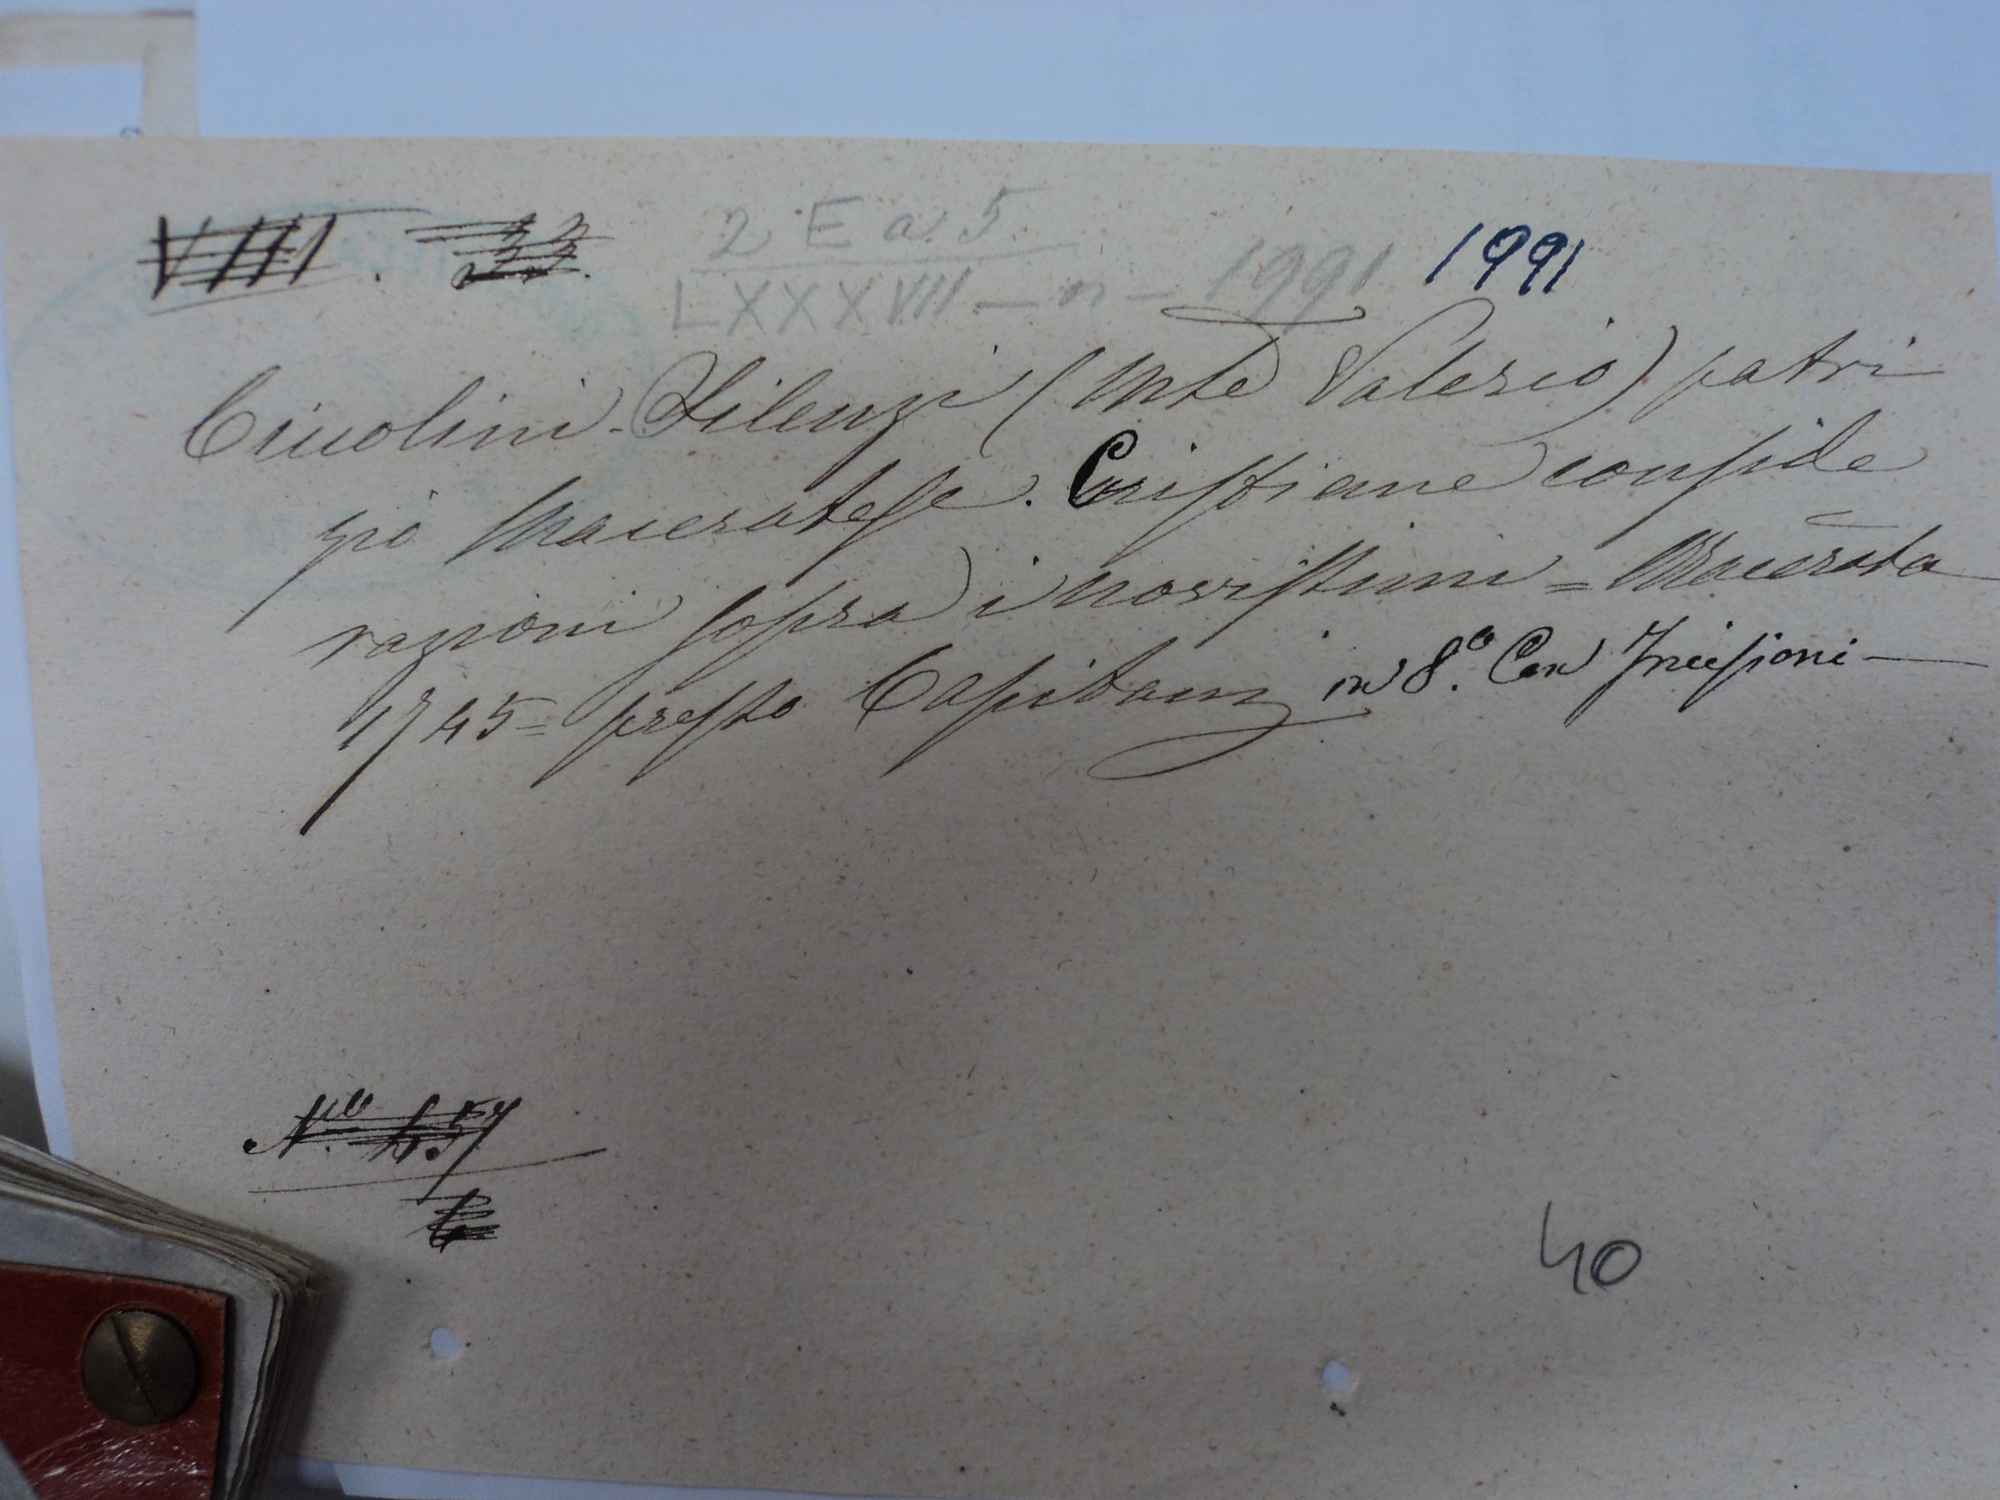 VIII.
2 E a. 5
LXXXVIII - n - 1991 1991
Ciccolini-Silenzi (Mse Valerio) patri
zio Maceratese. Cristiane conside
razioni sopra i novissimi = Macerata
1745 = presso Capitani in 8.° Con Incisioni —
40